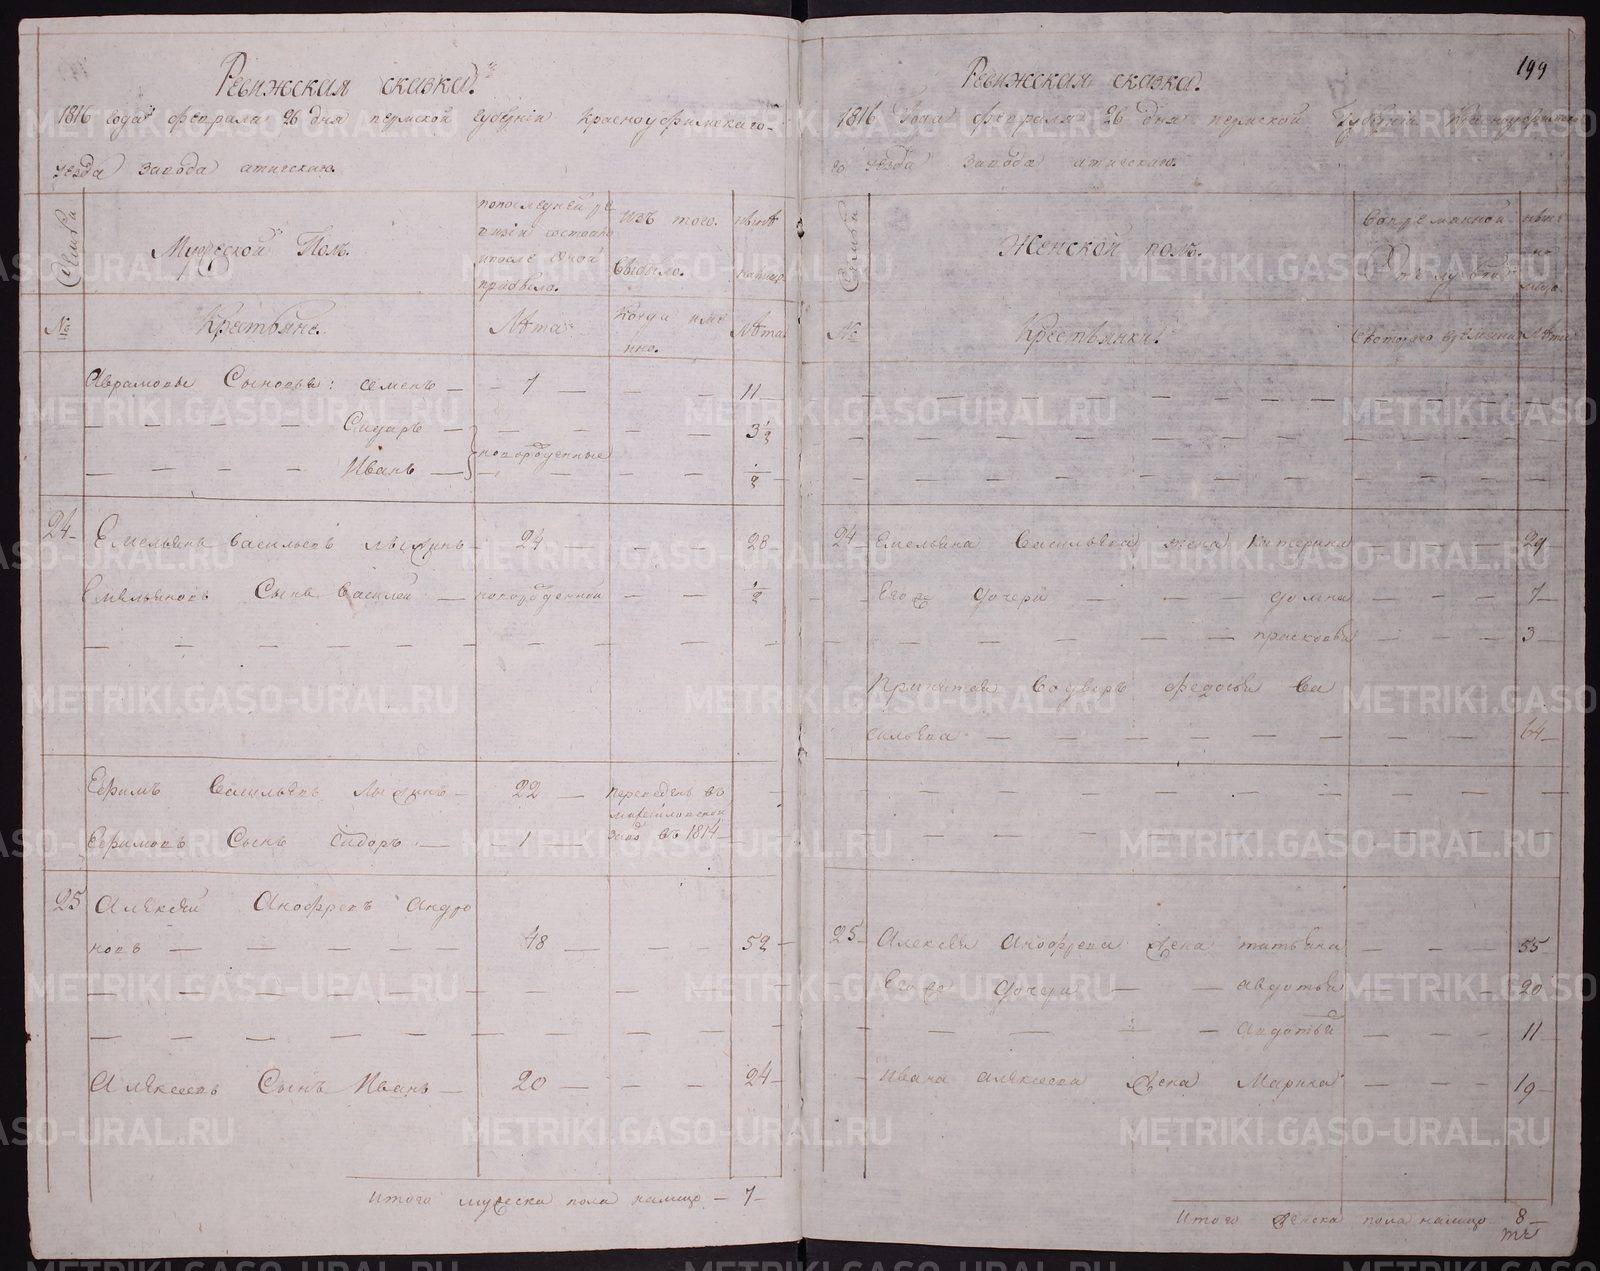 Ревижская сказка.
1816 года февраля 26 дня пермской губернiи красноуфимскаго
уезда завода атигскаго.
Семьи
Мужеской Полъ.
попоследней ре
визiи состояло
ипосле оной
прибыло.
изъ того.
выбыло.
ныне
налицо
№
Крестьяне.
Лѣта
Когда име
нно.
Лѣта
Аврамовы Сыновья: семенъ — 7 — — — 11
Сидаръ — 3 1/2
новорожденные
Иванъ — 1/2
24 Емельянъ васильевъ 24 — — — 28
Емельяновъ Сынъ Василей — новорожденной — — 1/2
Ефимъ Васильевъ — 22 — переведенъ въ
михайловской
Ефимовъ Сынъ Сидоръ — 1 — заво въ 1814
25 Алексей Анофревъ Андро
новъ — 48 — — — 52
Алексеевъ Сынъ Иванъ — 20 — — — 24
Итого мужеска пола налицо — 7
199
Ревижская сказка.
1816 года февраля 26 дня пермской Губернiи Красноуфимска
го уезда завода атигскаго.
Семьи
Женской полъ.
Вовременной
Отлучке
ныне
на
лицо
№
Крестьянки.
Скоторого времени
Лѣта
24 Емельяна Васильева жена катерина — 29
Его же дочери — домна — 7
прасковья — 3
Принятая во дворъ федосья Ва
сильева — 64
25 Алексея Анофрева жена татьяна — 55
Его же дочери — авдотья — 20
Авдотья — 11
Ивана алексеева жена Марина — 19
Итого женска пола налицо 8